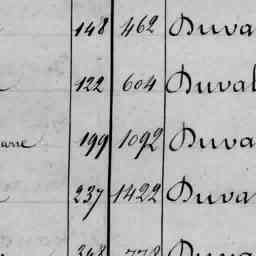 148 462 Duva
122 604 Duval
arre 199 1092 Duva
237 1422 Duva
348 778 Duva